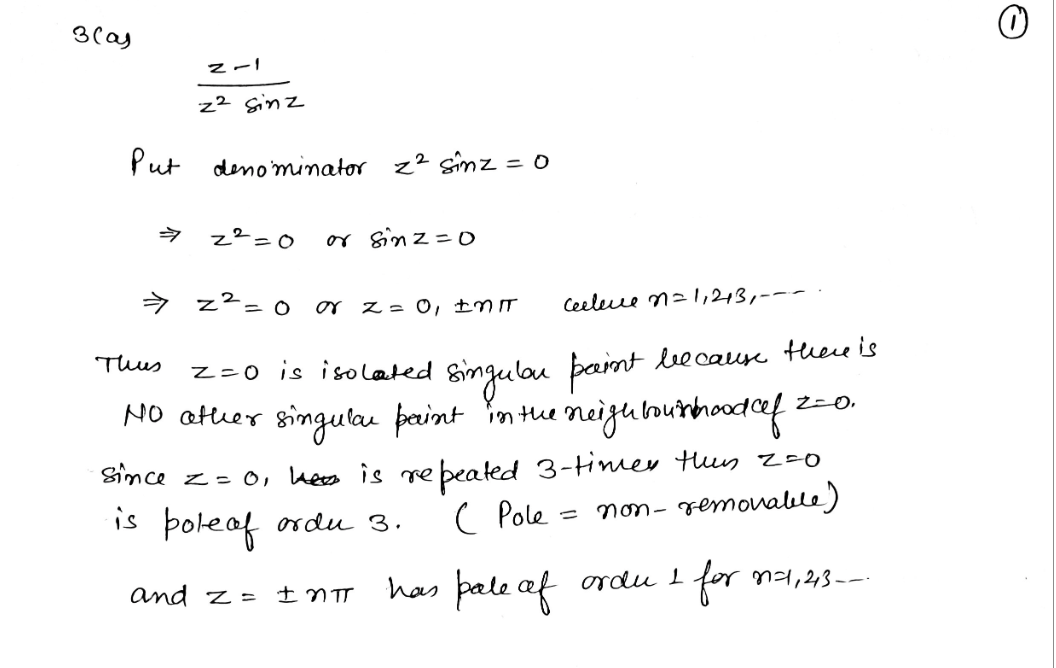 3(a)
①
z-1
z² sinz
Put denominator z² sinz = 0
⇒ z² = 0 or sinz = 0
⇒ z² = 0 or z = 0, ±nπ where n=1,2,3,---.
Thus z=0 is isolated singular point because there is
NO other singular point in the neighbourhood of z=0.
Since z = 0, is repeated 3-times thus z=0
is pole of order 3. ( Pole = non-removable)
and z = ±nπ has pole of order 1 for n=1,2,3---.